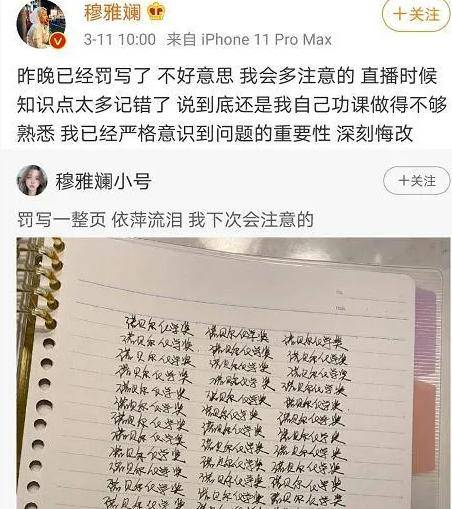 穆雅斓
+关注
3-11 10:00 来自 iPhone 11 Pro Max
昨晚已经罚写了 不好意思 我会多注意的 直播时候
知识点太多记错了 说到底还是我自己功课做得不够
熟悉 我已经严格意识到问题的重要性 深刻悔改
穆雅斓小号
+关注
罚写一整页 依萍流泪 我下次会注意的
诺贝尔化学奖 诺贝尔化学奖 诺贝尔化学奖
诺贝尔化学奖 诺贝尔化学奖 诺贝尔化学奖
诺贝尔化学奖 诺贝尔化学奖 诺贝尔化学奖
诺贝尔化学奖 诺贝尔化学奖 诺贝尔化学奖
诺贝尔化学奖 诺贝尔化学奖 诺贝尔化学奖
诺贝尔化学奖 诺贝尔化学奖 诺贝尔化学奖
诺贝尔化学奖 诺贝尔化学奖 诺贝尔化学奖
诺贝尔化学奖 诺贝尔化学奖 诺贝尔化学奖
诺贝尔化学奖 诺贝尔化学奖 诺贝尔化学奖
诺贝尔化学奖 诺贝尔化学奖 诺贝尔化学奖
诺贝尔化学奖 诺贝尔化学奖 诺贝尔化学奖
诺贝尔化学奖